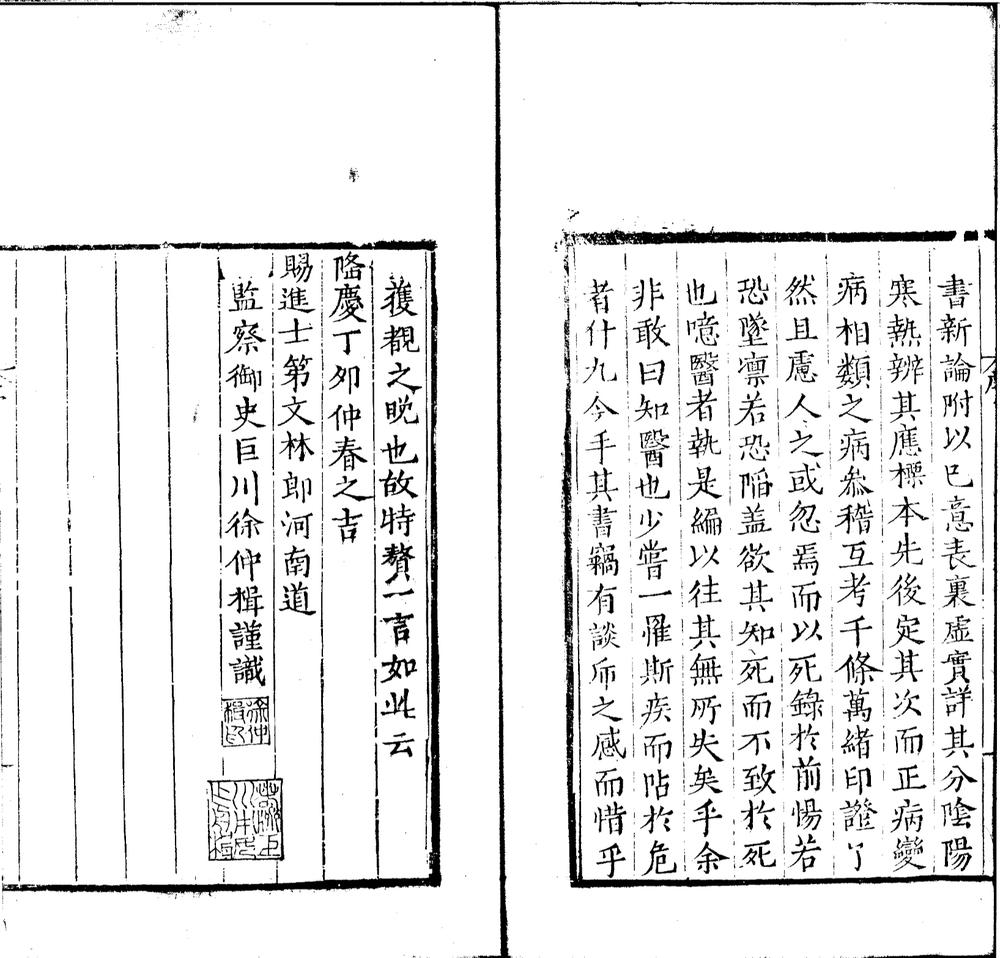 書新論附以已意表裏虛實詳其分陰陽
寒熱辨其應標本先後定其次而正病變
病相類之病叅稽互考千條萬緒印證了
然且慮人之或忽焉而以死錄於前惕若
恐墜凛若恐陷盖欲其知死而不致於死
也噫醫者執是編以往其無所失矣乎余
非敢曰知醫也少嘗一罹斯疾而帖於危
者什九今手其書竊有談虎之感而惜乎
獲覩之晚也故特贅一言如此云
隆慶丁夘仲春之吉
賜進士第文林郎河南道
監察御史巨川徐仲楫謹識
徐仲楫印